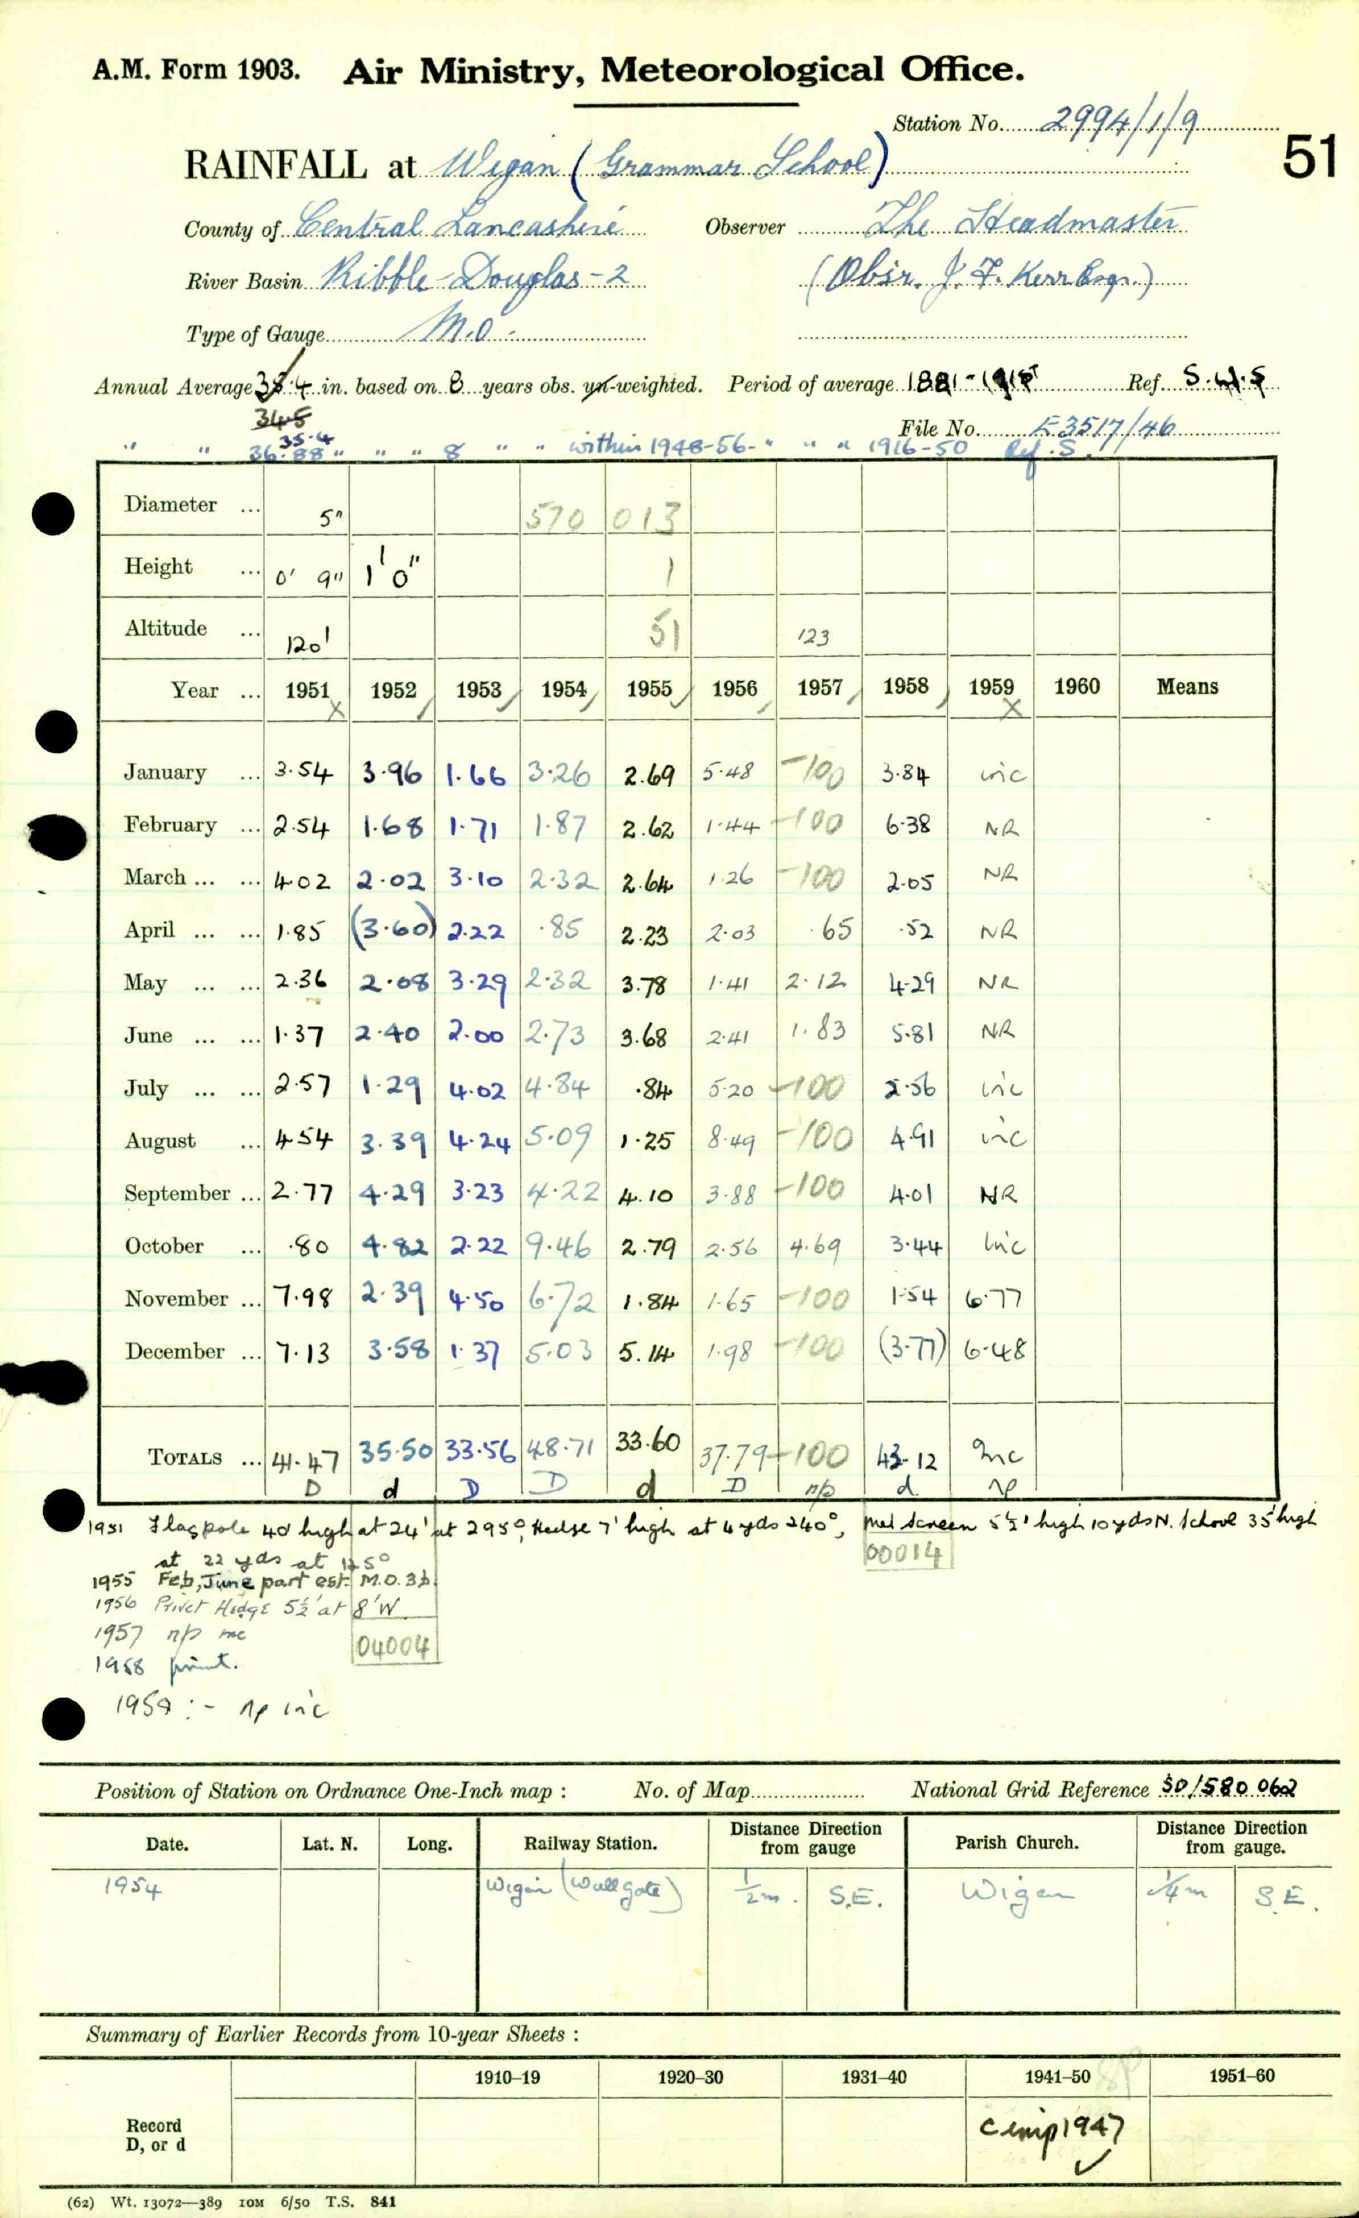 A.M. Form 1903. Air Ministry, Meteorological Office.
Station No. 2994/1/9
51
RAINFALL at Wigan (Grammar School)
County of Central Lancashire Observer The Headmaster
River Basin Ribble-Douglas-2 (Obsr. J. F. Kerr Esqr.)
Type of Gauge M.O.
Annual Average 35.4 in. based on 8 years obs. un-weighted. Period of average 1881-1915 Ref. S.W.S
34.5
File No. 3517/46
35.4
" " 36.88 " " " 8 " " within 1948-56 - " " " 1916-50 Ref. S.
Diameter ... 5" 570 013
Height ... 0' 9" 1' 0" 1
Altitude ... 120' 51 123
Year ... 1951 1952 1953 1954 1955 1956 1957 1958 1959 1960 Means
X X
January ... 3.54 3.96 1.66 3.26 2.69 5.48 -100 3.84 inc
February ... 2.54 1.68 1.71 1.87 2.62 1.44 -100 6.38 NR
March ... ... 4.02 2.02 3.10 2.32 2.64 1.26 -100 2.05 NR
April ... ... 1.85 (3.60) 2.22 .85 2.23 2.03 .65 .52 NR
May ... ... 2.36 2.08 3.29 2.32 3.78 1.41 2.12 4.29 NR
June ... ... 1.37 2.40 2.00 2.73 3.68 2.41 1.83 5.81 NR
July ... ... 2.57 1.29 4.02 4.84 .84 5.20 -100 2.56 inc
August ... 4.54 3.39 4.24 5.09 1.25 8.49 -100 4.91 inc
September ... 2.77 4.29 3.23 4.22 4.10 3.88 -100 4.01 NR
October ... .80 4.82 2.22 9.46 2.79 2.56 4.69 3.44 inc
November ... 7.98 2.39 4.50 6.72 1.84 1.65 -100 1.54 6.77
December ... 7.13 3.58 1.37 5.03 5.14 1.98 -100 (3.77) 6.48
TOTALS ... 41.47 35.50 33.56 48.71 33.60 37.79 -100 43.12 Inc
D d D D d D np d. np
1951 Flagpole 40' high at 24' at 295°, Hedge 7' high at 4 yds 240°, Met Screen 5½' high 10 yds N. School 35' high
at 22 yds at 125°
00014
1955 Feb, June part est. M.O.3b.
1956 Privet Hedge 5½' at 8' W
1957 n/p inc
04004
1958 print.
1959 :- np inc
Position of Station on Ordnance One-Inch map : No. of Map National Grid Reference SD/580 062
Date. Lat. N. Long. Railway Station. Distance Direction from gauge Parish Church. Distance Direction from gauge.
1954 Wigan (Wallgate) ½m. S.E. Wigan ¼m S.E.
Summary of Earlier Records from 10-year Sheets :
1910–19 1920–30 1931–40 1941–50 1951–60
Record
D, or d
Cenip 1947
(62) Wt. 13072—389 10M 6/50 T.S. 841